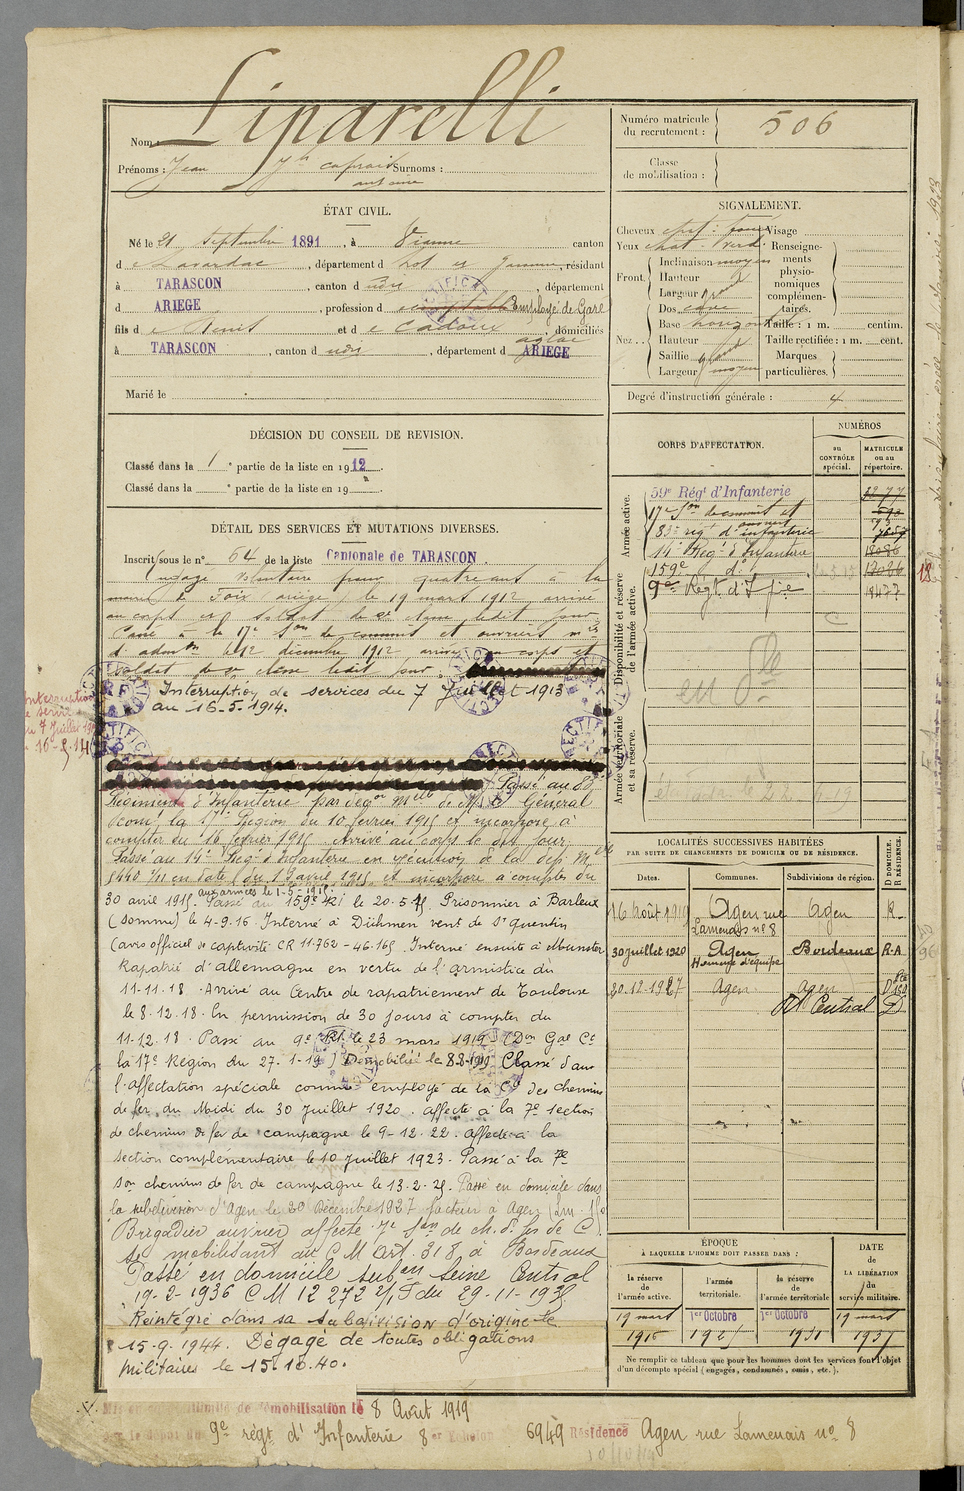 Nom : Liparelli
Prénoms : Jean Jh caprais Surnoms :
antoine
ÉTAT CIVIL.
Né le 21 Septembre 1891, à Vianne canton
de Lavardac, département d Lot et Garonne, résidant
à TARASCON, canton d udit, département
d ARIEGE, profession d Employé de Gare
fils d e Denis et d e Cadour domiciliés
aglaé
à TARASCON, canton d udit, département d ARIEGE
Marié le
DÉCISION DU CONSEIL DE REVISION.
Classé dans la 1e partie de la liste en 1912.
Classé dans la e partie de la liste en 19
DÉTAIL DES SERVICES ET MUTATIONS DIVERSES.
Inscrit sous le n° 64 de la liste Cantonale de TARASCON.
Engagé volontaire pour quatre ans à la
mairie de Foix ariège, le 19 mars 1912 arrivé
au corps et soldat de 2e classe ledit jour
Passé à la 17e Son de commis et ouvriers mres
d'admon le 12 décembre 1912 arrivé au corps et
soldat de 2e classe ledit jour
Interruption de services du 7 Juillet 1913
au 16-5-1914.
Passé au 83e
Régiment d'Infanterie par Déqon Melle de Mr le Général
Comt la 17e Région du 10 février 1915 et incorporé à
compter du 16 février 1915 Arrivé au corps le dit jour
Passé au 14e Regt d'Infanterie en exécution de la dép Melle
5440 3/11 en date du 19 avril 1915 et incorporé à compter du
aux armées le 1-5-1915.
30 avril 1915. Passé au 159e RI le 20.5.15. Prisonnier à Barleux
(Somme) le 4-9-16 Interné à Dülmen vent de St quentin
(avis officiel de captivité CR 11.762-46.165. Interné ensuite à Munster
Rapatrié d'allemagne en vertu de l'armistice du
11-11-18. Arrivé au Centre de rapatriement de Toulouse
le 8-12-18. En permission de 30 jours à compter du
11-12.18. Passé au 9e RI. le 23 mars 1919 (Don Gal Ct
la 17e Région du 27-1-19) Démobilisé le 8-8-1919 Classé dans
l'affectation spéciale comme employé de la Cie des chemins
de fer du Midi du 30 Juillet 1920. affecté à la 7e section
de chemins de fer de campagne le 9-12-22. affecté à la
section complémentaire le 10 Juillet 1923. Passé à la 7e
Son chemins de fer de campagne le 13-2-25. Passé en domicile dans
la subdivision d'Agen le 20 Décembre 1927 facteur à Agen
Brigadier ouvrier affecté 7e Son de ch. d. fer de C.
se mobilisant au C M Art. 318, à Bordeaux
Passé en domicile subon Seine Central
19-2-1936 C M 12 272 2/1 S du 29-11-1935
Réintégré dans sa subdivision d'origine le
15-9-1944. Dégagé de toutes obligations
militaires le 15.10.40.
Interruption
de services
du 7 Juillet 1913
au 16-5-14
démobilisation le 8 Août 1919
9e régt d'Infanterie 8er Echelon 6949 Résidence Agen rue Lamenais no 8
Numéro matricule
du recrutement : 506
Classe
de mobilisation :
SIGNALEMENT.
Cheveux Visage
Yeux chat. verd. Renseigne-
ments
physio-
nomiques
complémen-
taires.
Front. Inclinaison moyen
Hauteur
Largeur grand
Nez .. Dos cave
Base horizontale
Hauteur
Saillie grand
Largeur moyen
Taille : 1 m. centim.
Taille rectifiée : 1 m. cent.
Marques
particulières.
Degré d'instruction générale : 4
CORPS D'AFFECTATION.
NUMÉROS
au
CONTRÔLE
spécial.
MATRICULE
ou au
répertoire.
Armée active.
59e Régt d'Infanterie 3277
17e Son de commis et
ouvriers
83e régt d'infanterie
14e Régt d'Infanterie 18086
159e do 18086
9e Régt d'Ifie 18477
Disponibilité et réserve
de l'armée active.
Armée territoriale
et sa réserve.
LOCALITÉS SUCCESSIVES HABITÉES
PAR SUITE DE CHANGEMENTS DE DOMICILE OU DE RÉSIDENCE.
Dates. Communes. Subdivisions de région. D DOMICILE. R RÉSIDENCE.
16 Août 1919 Agen rue Agen R
Lamenais no 8
30 juillet 1920 Agen Bordeaux R-A
Homme d'équipe
20-12-1927 Agen Agen D
Central D
ÉPOQUE
À LAQUELLE L'HOMME DOIT PASSER DANS :
la réserve
de l'armée active.
l'armée
territoriale.
la réserve
de l'armée territoriale
DATE
de
LA LIBÉRATION
du
service militaire.
19 mars 1er Octobre 1er Octobre 19 mars
1916 1925 1931 1937
Ne remplir ce tableau que pour les hommes dont les services font l'objet
d'un décompte spécial (engagés, condamnés, omis, etc.).